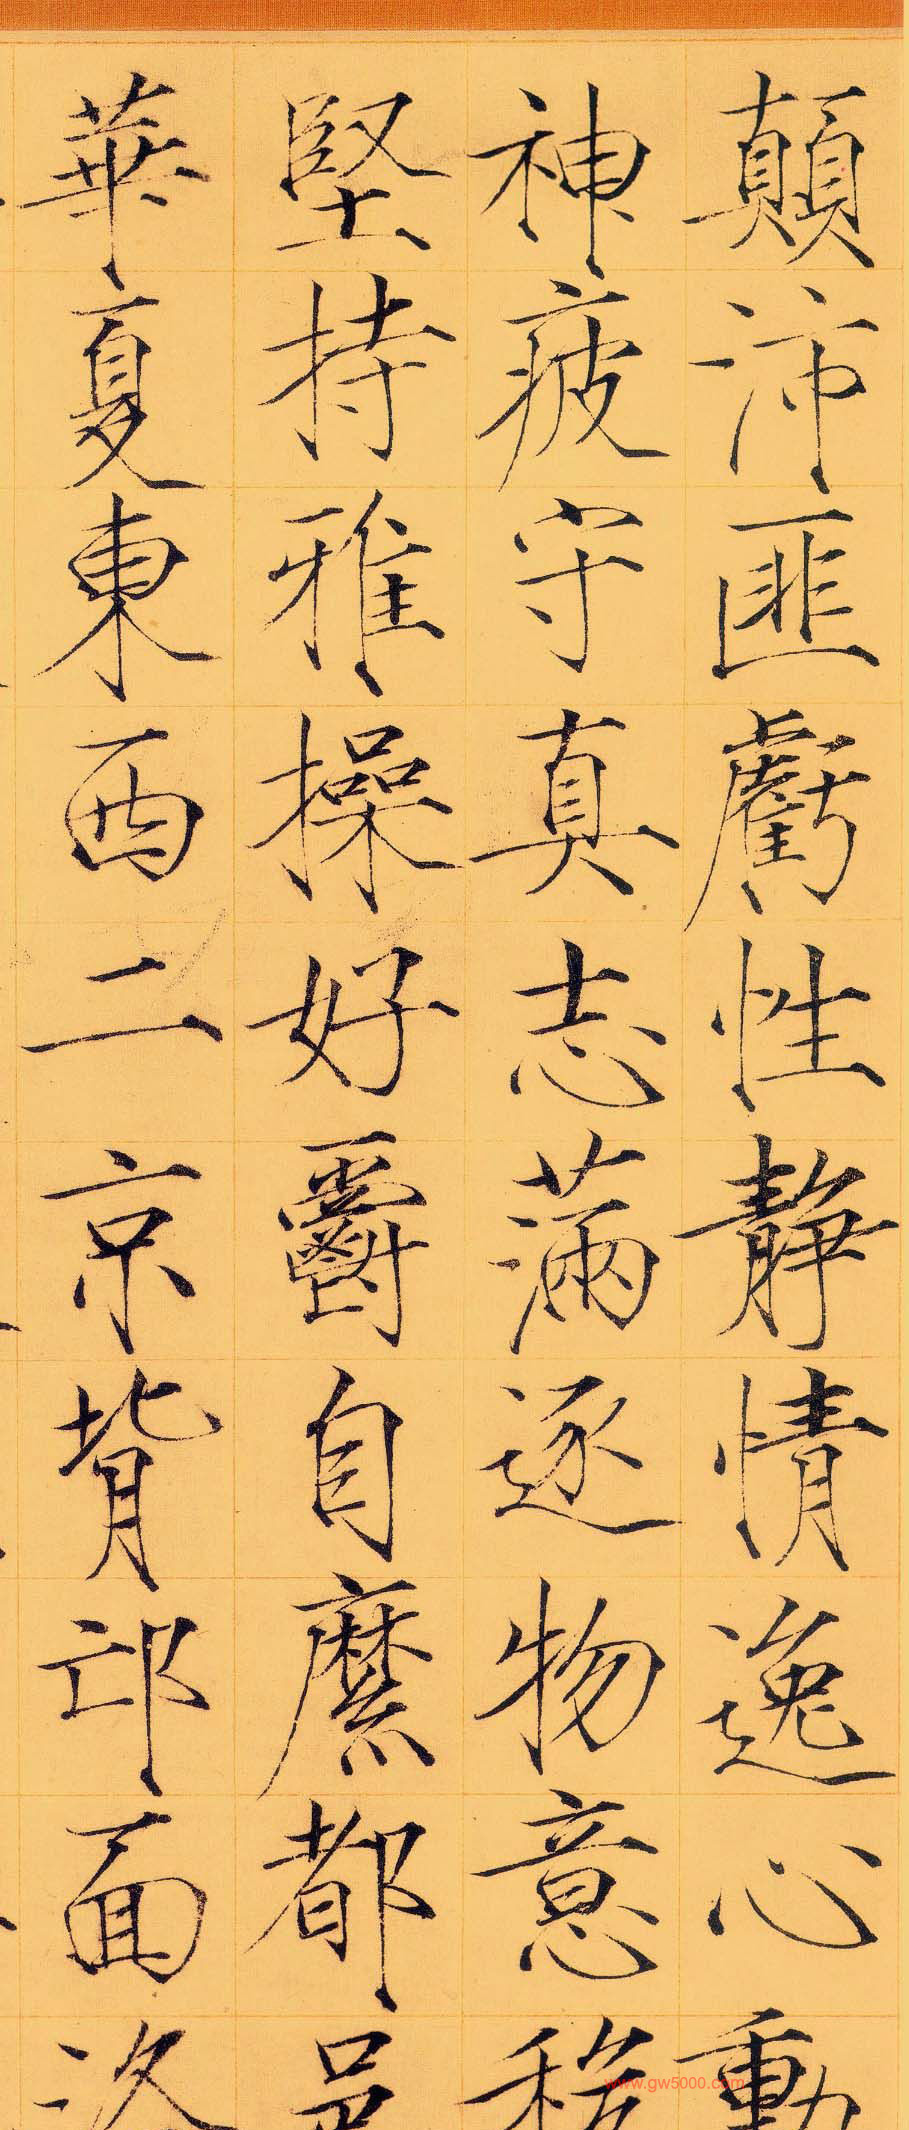 顛沛匪虧性靜情逸心動
神疲守真志滿逐物意移
堅持雅操好爵自縻都邑
華夏東西二京背邙面洛
www.gw5000.com